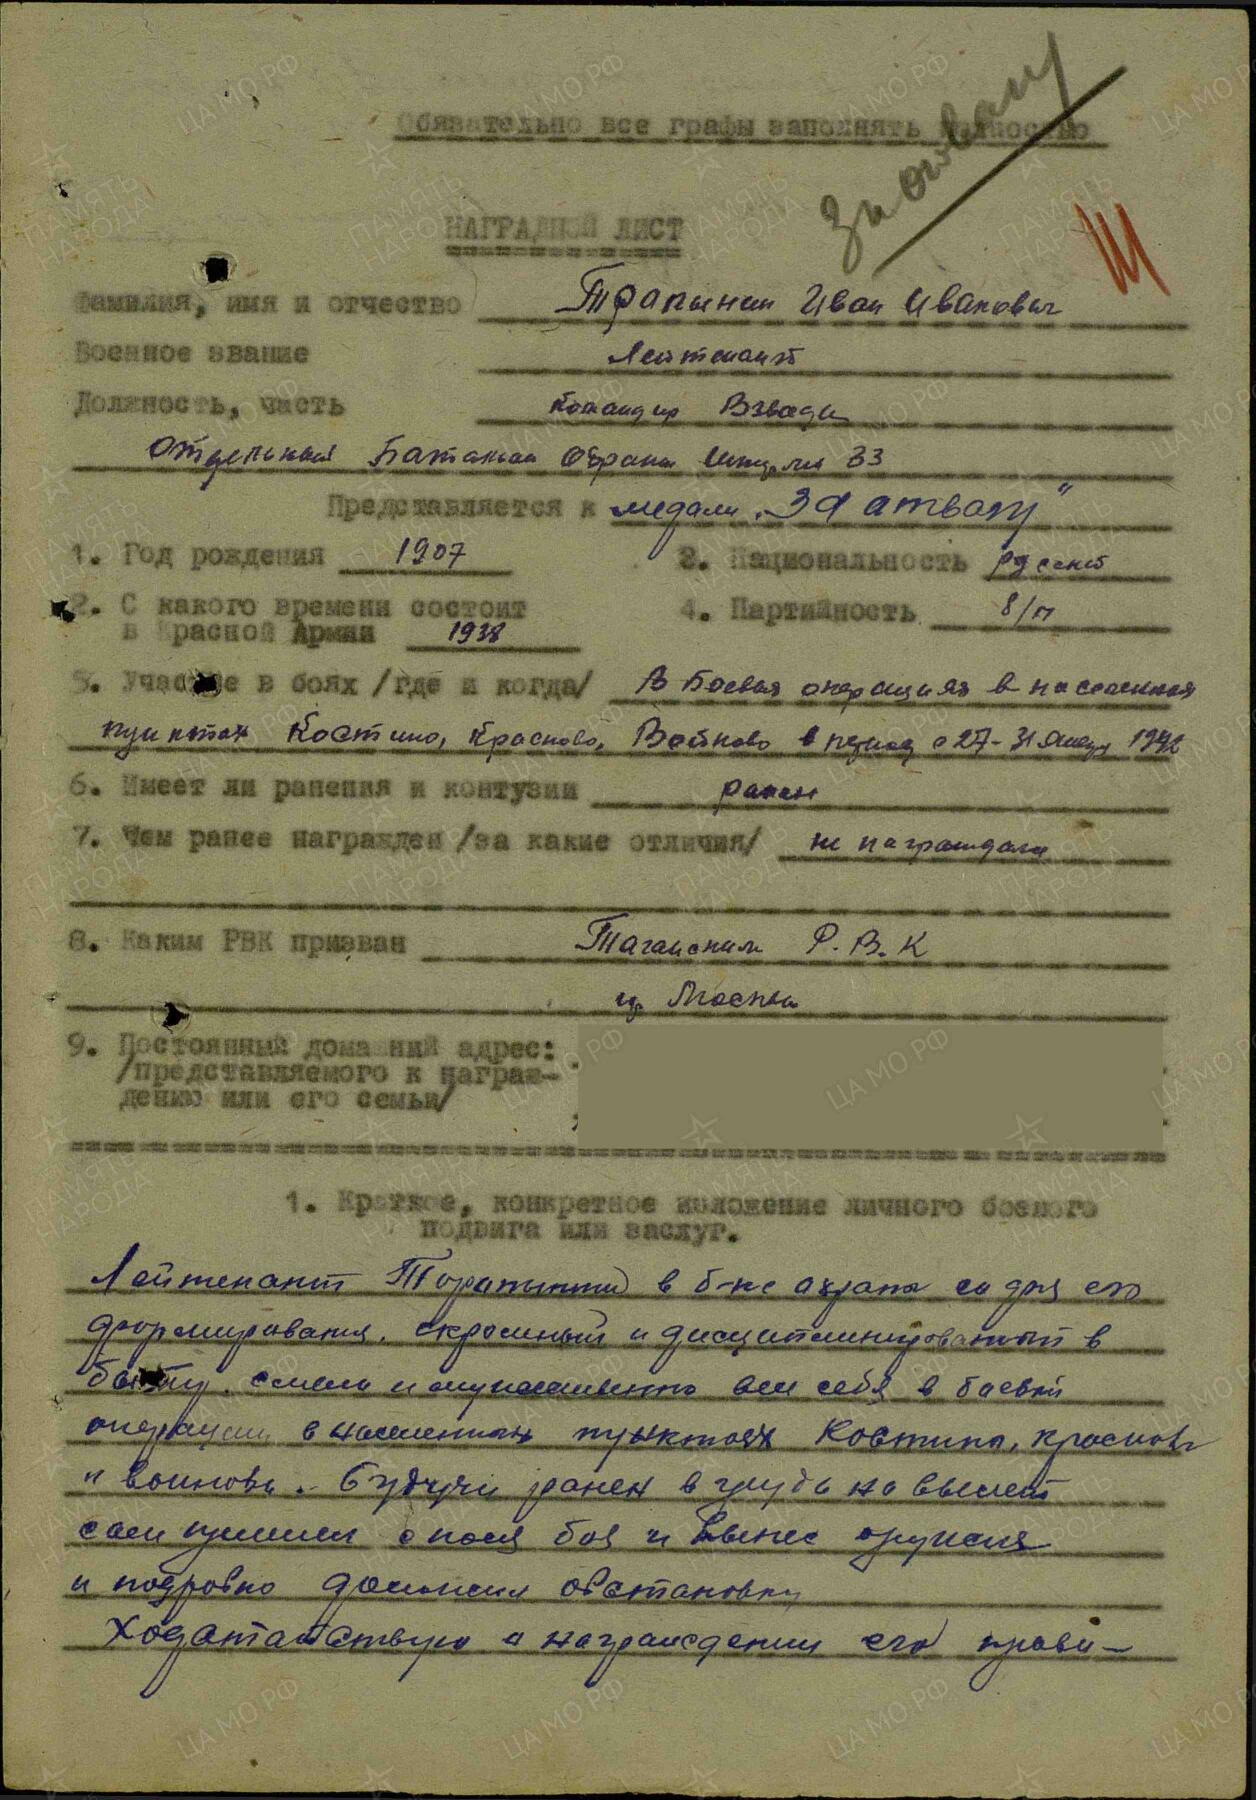 Обязательно все графы заполнять полностью
За отвагу
НАГРАДНОЙ ЛИСТ
Фамилия, имя и отчество Трапынин Иван Иванович
Военное звание Лейтенант
Должность, часть Командир Взвода
Отдельный Баталион Охраны 33
Представляется к медали „За отвагу"
1. Год рождения 1907 3. Национальность русский
2. С какого времени состоит 4. Партийность б/п
в Красной Армии 1938
5. Участие в боях /где и когда/ В Боевых операциях в населенных
пунктах Костино, Красново, Войново в период с 27-31 января 1942
6. Имеет ли ранения и контузии ранен
7. Чем ранее награжден /за какие отличия/ не награждался
8. Каким РВК призван Таганским Р.В.К
гр. Москвы
9. Постоянный домашний адрес:
/представляемого к награж-
дению или его семьи/
1. Краткое, конкретное изложение личного боевого
подвига или заслуг.
Лейтенант в б-не охраны со дня его
формирования. скромный и дисциплинированный в
быту. смело и мужественно вел себя в боевой
операции в населенных пунктах Костино, Красново
и Воиново. Будучи ранен в грудь на вылет
сам пришел с поля боя и вынес оружия
и подробно доложил обстановку
Ходатайствую о награждении его прави-